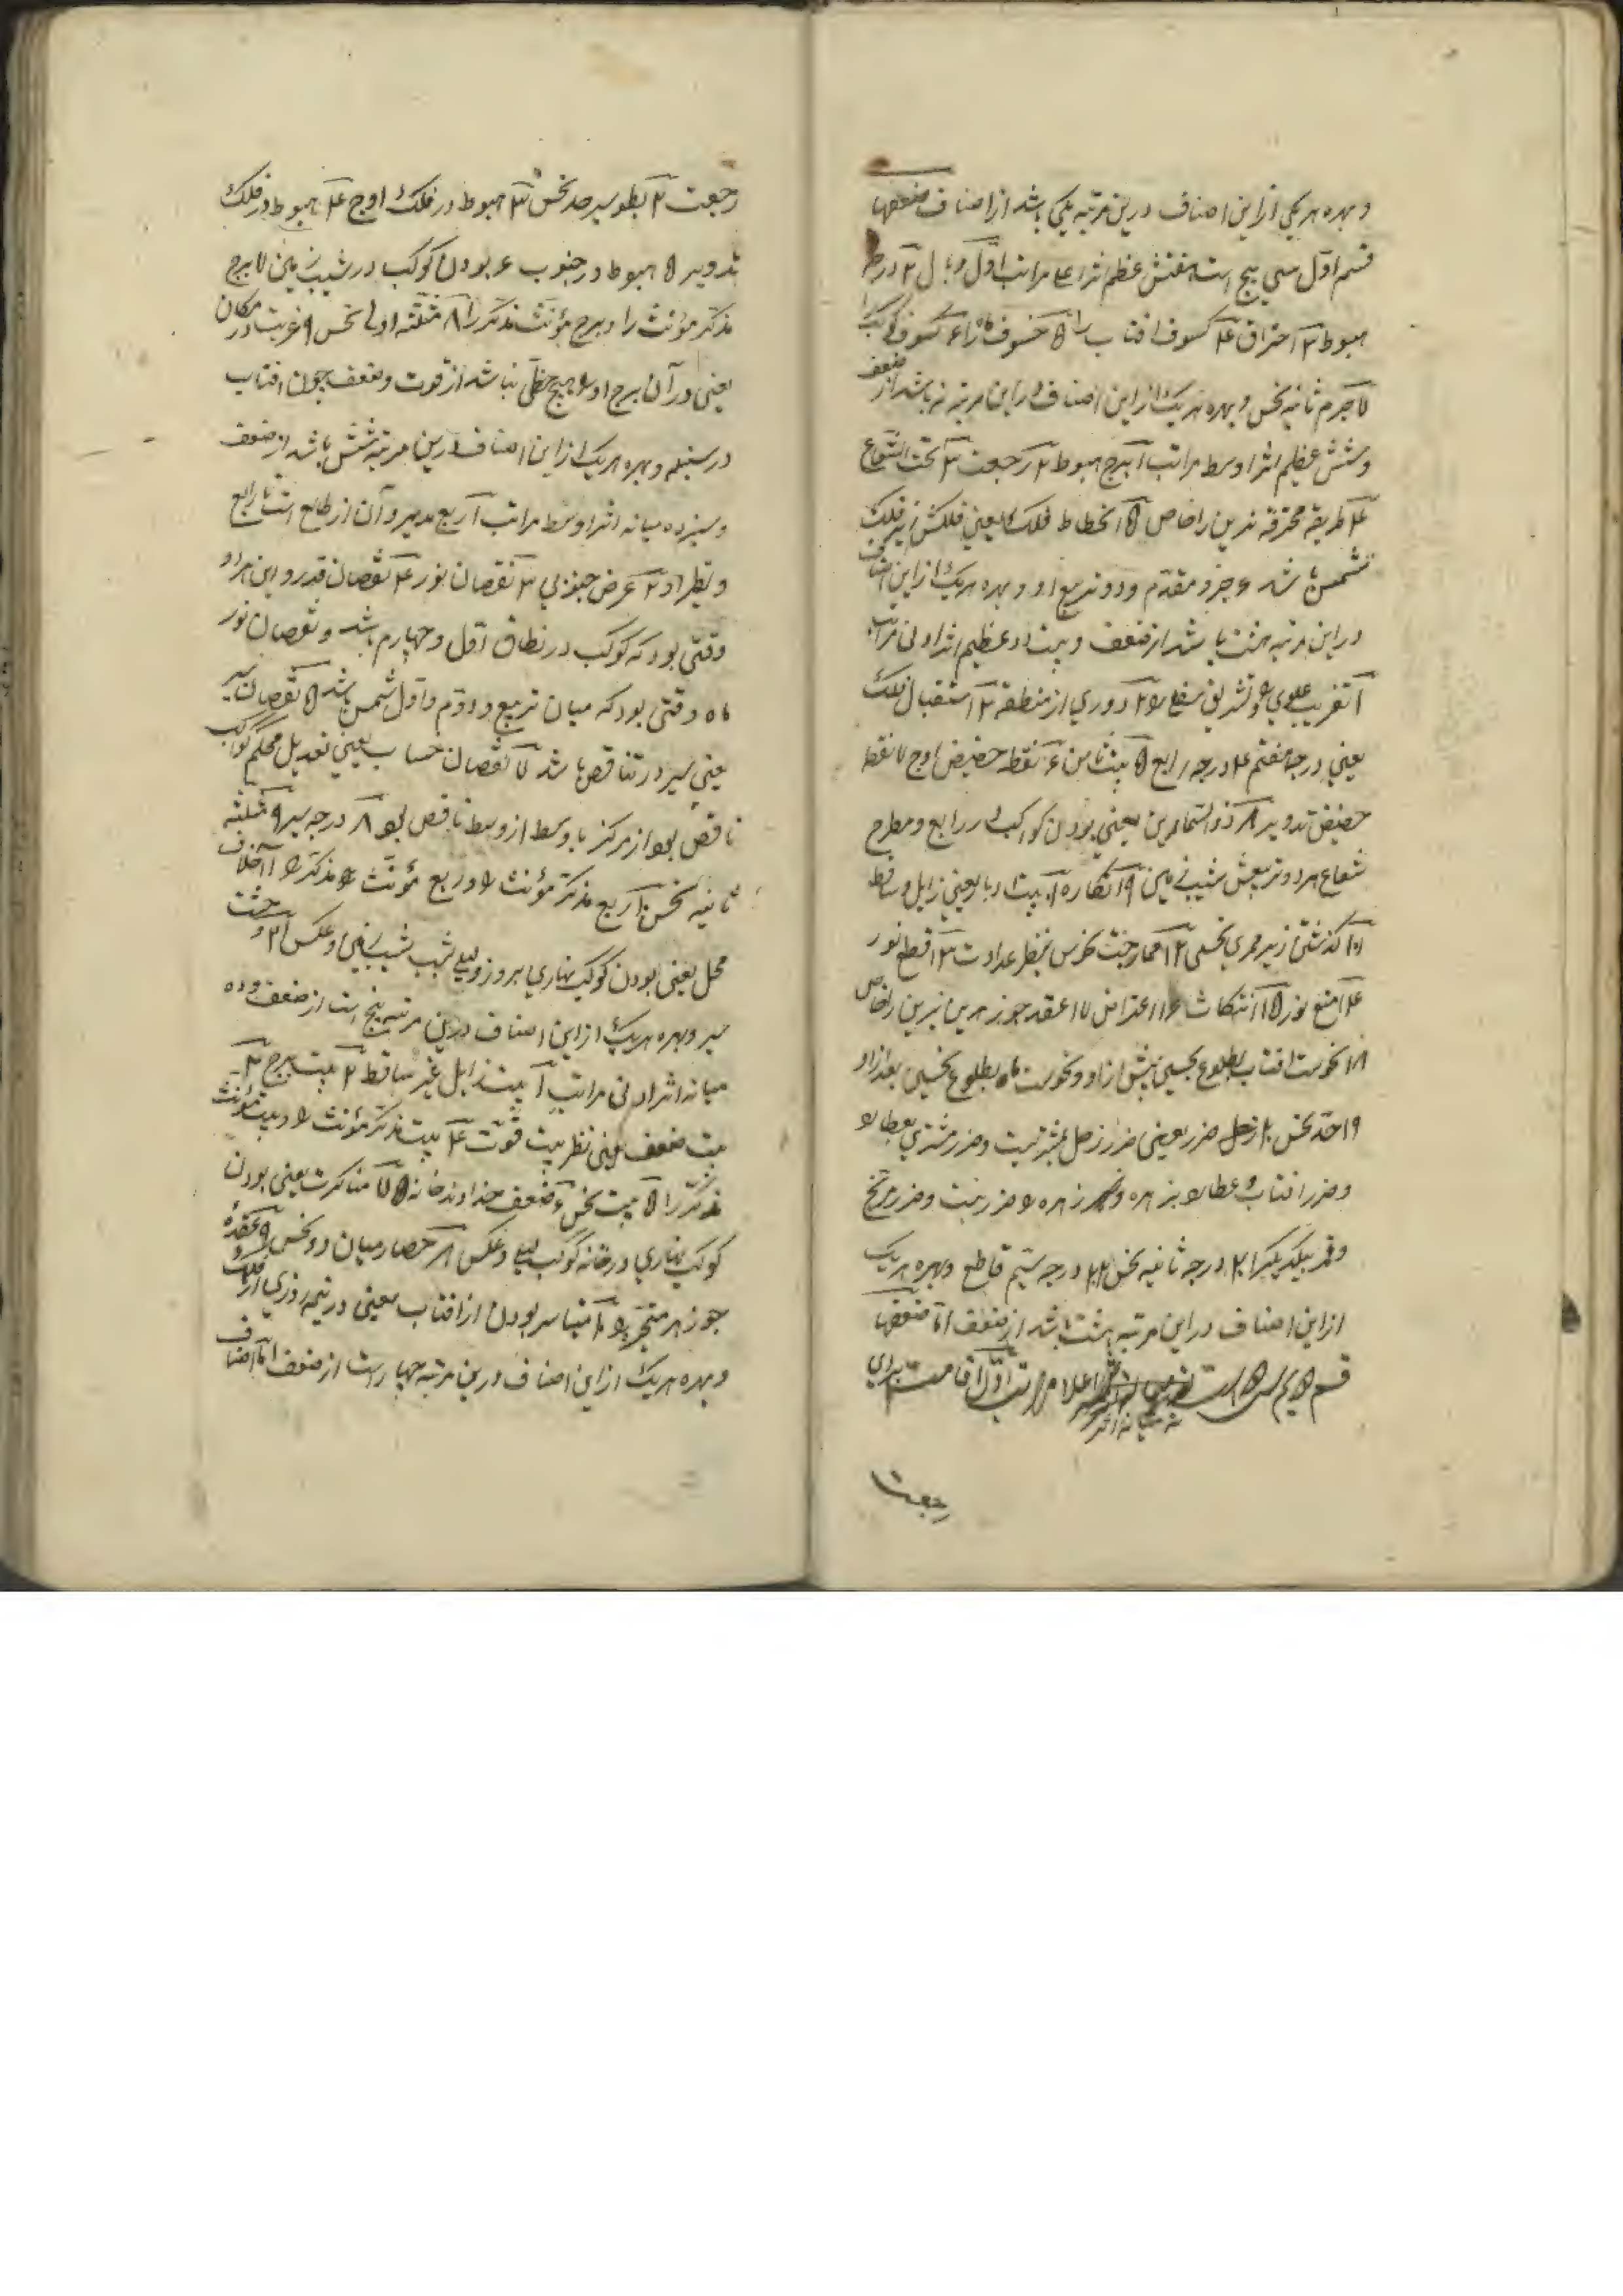 و بهره هر یکی از این اصناف درین مرتبه یکی باشد از اصناف ضعفها
قسم اول سی پنج است هفتش عظیم اثر اعلی مراتب اول وبال ۲ درجه
هبوط ۳ احتراق ۴ کسوف افتاب را ۵ خسوف ماه را ۶ کسوف کوکب را
۷ جرم ثانیه نحس و بهره هر یک از این اصناف در این مرتبه نه باشد از ضعف
و شش عظیم اثر اوسط مراتب ۱ برج هبوط ۲ رجعت ۳ تحت الشعاع
۴ طریقه محترقه نیرین را خاص ۵ انحطاط فلک یعنی فلکش زیر فلک
شمس باشد ۶ جزو مقدم و دو تربیع او و بهره هر یک از این اصناف
در این مرتبه هشت باشد از ضعف و بیست و دو عظیم اثر ادنی مراتب
۱ تغریب علوی و تشریق سفلی ۲ دوری از منطقه ۳ استقبال فلک
یعنی درجه هفتم ۴ درجه رابع ۵ بیت ثامن ۶ نقطه حضیض اوج ۷ نقطه
حضیض تدویر ۸ یعنی بودن کواکب در رابع و مطرح
شعاع هر دو تربیعش شیب زمین ۹ انکار ۱۰ بیت دبار یعنی زایل و ساقط
۱۱ گذشتن از زیر ممر نحس ۱۲ ممازجت نحس بنظر عداوت ۱۳ قطع نور
۱۴ منع نور ۱۵ انتکاث ۱۶ اعتراض ۱۷ عقد جوزهرین نیرین را خاص
۱۸ نحوست افتاب بطلوع نحسین پیش از او و نحوست ماه بطلوع نحسین بعد از او
۱۹ حد نحس ۲۰ ضرر یعنی ضرر زحل بمشتریست و ضرر مشتری بعطارد
و ضرر افتاب و عطارد بزهره و زهره و ضرر نیست و ضرر مریخ
و قمر بیکدیگر ۲۱ درجه ثانیه نحس ۲۲ درجه ستیم قاطع و بهره هر یک
از این اصناف در این مرتبه هشت باشد از ضعف اما ضعفها
قسم دویم سی است نه میانه اثر اعلا مراتب اول اقامت برای
رجعت
رجعت ۲ بطو سیر حد نحس ۳ هبوط در فلک اوج ۴ هبوط در فلک
تدویر ۵ هبوط در جنوب ۶ بودن کوکب در شیب زمین ۷ برج
مذکر مؤنث را و برج مؤنث مذکر را ۸ مثلثه اولی نحس ۹ غربت در مکان
یعنی در آن برج او را هیچ حظی نباشد از قوت و ضعف چون افتاب
در سنبله و بهره هر یک از این اصناف درین مرتبه شش باشد از ضعف
و سیزده میانه اثر اوسط مراتب ۱ ربع مدبر و آن از طالع است تا رابع
و نظیر او ۲ عرض جنوبی ۳ نقصان نور ۴ نقصان قدر و این هر دو
وقتی بود که کوکب در نطاق اول و چهارم باشد و نقصان نور
ماه وقتی بود که میان تربیع دوم و اول شمس باشد ۵ نقصان سیر
یعنی سیر در تناقص باشد ۷ نقصان حساب یعنی تعدیل محکم کواکب
ناقص بود از مرکز یا وسط از وسط ناقص بود ۸ درجه بیر ۹ مثلثه
ثانیه نحس ۱۰ ربع مذکر مؤنث را و ربع مؤنث مذکر را ۱۱ خلاف
محل یعنی بودن کوکب نهاری بروز و لیلی شب شیب زمین و عکس ۱۲ وحشت
سیر و بهره هر یک از این اصناف درین مرتبه پنج است از ضعف و ده
میانه اثر ادنی مراتب ۱ بیت زایل غیر ساقط ۲ بیت برج ۳
بیت ضعف یعنی نظر بیت قوت ۴ بیت مذکر مؤنث را و بیت مؤنث
مذکر را ۵ بیت نحس ۶ ضعف خداوند خانه ۷ مناکرت یعنی بودن
کوکب نهاری در خانه کوکب لیلی و عکس ۸ حصار میان دو نحس ۹ عقده
جوزهر متحیره ۱۰ تیاسر بودن از افتاب یعنی در نیمه روزی از فلک
و بهره هر یک از این اصناف درین مرتبه چهار است از ضعف اما اصناف